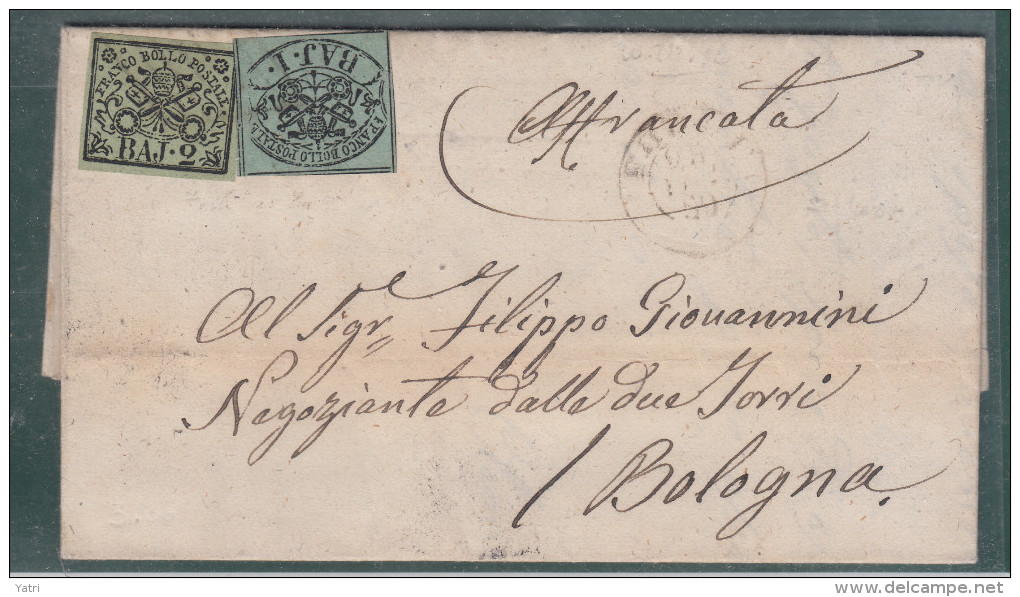 FRANCO BOLLO POSTALE
BAJ·2
BAJ·1·
FRANCO BOLLO POSTALE
Affrancata
Al Sigr Filippo Giovannini
Negoziante dalle due Torri
Bologna.
Yatri
delcampe.net